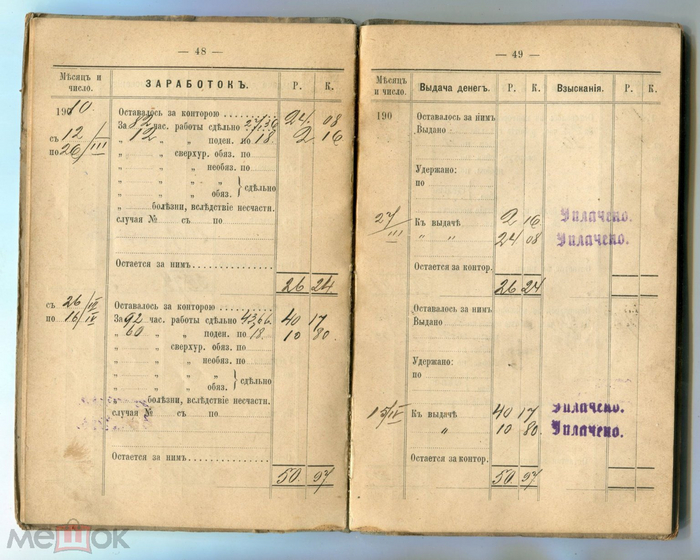 — 48 —
Мѣсяцъ и число.
ЗАРАБОТОКЪ.
Р. К.
1910.
Оставалось за конторою 24 08
За 82 час. работы сдѣльно
съ 12/III
„ 12 „ „ поден. по 18. 2 16
по 26/III
„ „ сверхур. обяз. по
„ „ „ необяз. по
„ „ „ сдѣльно
„ „ „ обяз.
„ болѣзни, вслѣдствіе несчастн.
случая № съ по
Остается за нимъ
26 24
съ 26/III
Оставалось за конторою
по 16/IV
За 92 час. работы сдѣльно 43,66. 40 17
„ 60 „ „ поден. по 18. 10 80.
„ „ сверхур. обяз. по
„ „ „ необяз. по
„ „ „ сдѣльно
„ „ „ обяз.
„ болѣзни, вслѣдствіе несчастн.
случая № съ по
Остается за нимъ
50. 97
— 49 —
Мѣсяцъ и число.
Выдача денегъ.
Р. К.
Взысканія.
Р. К.
190
Оставалось за нимъ
Выдано
Удержано:
по
27/III
Къ выдачѣ 2 16 Уплачено.
„ „ 24 08 Уплачено.
Остается за контор.
26 24
Оставалось за нимъ
Выдано
Удержано:
по
15/IV Къ выдачѣ 40 17 Уплачено.
„ 10 80. Уплачено.
Остается за контор.
50 97
мешок